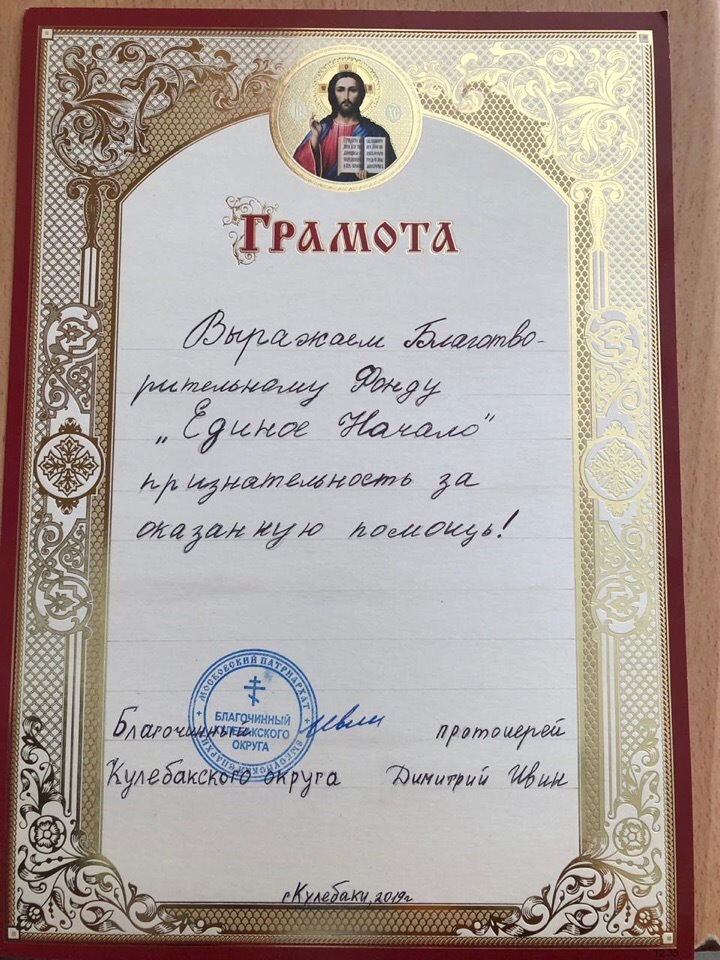 ГРАМОТА
Выражаем Благотво-
рительному Фонду
„Единое Начало"
признательность за
оказанную помощь!
МОСКОВСКИЙ ПАТРИАРХАТ
ВЫКСУНСКАЯ ЕПАРХИЯ
БЛАГОЧИННЫЙ
КУЛЕБАКСКОГО
ОКРУГА
Благочинный протоиерей
Кулебакского округа Димитрий Ивин
г.Кулебаки, 2019г